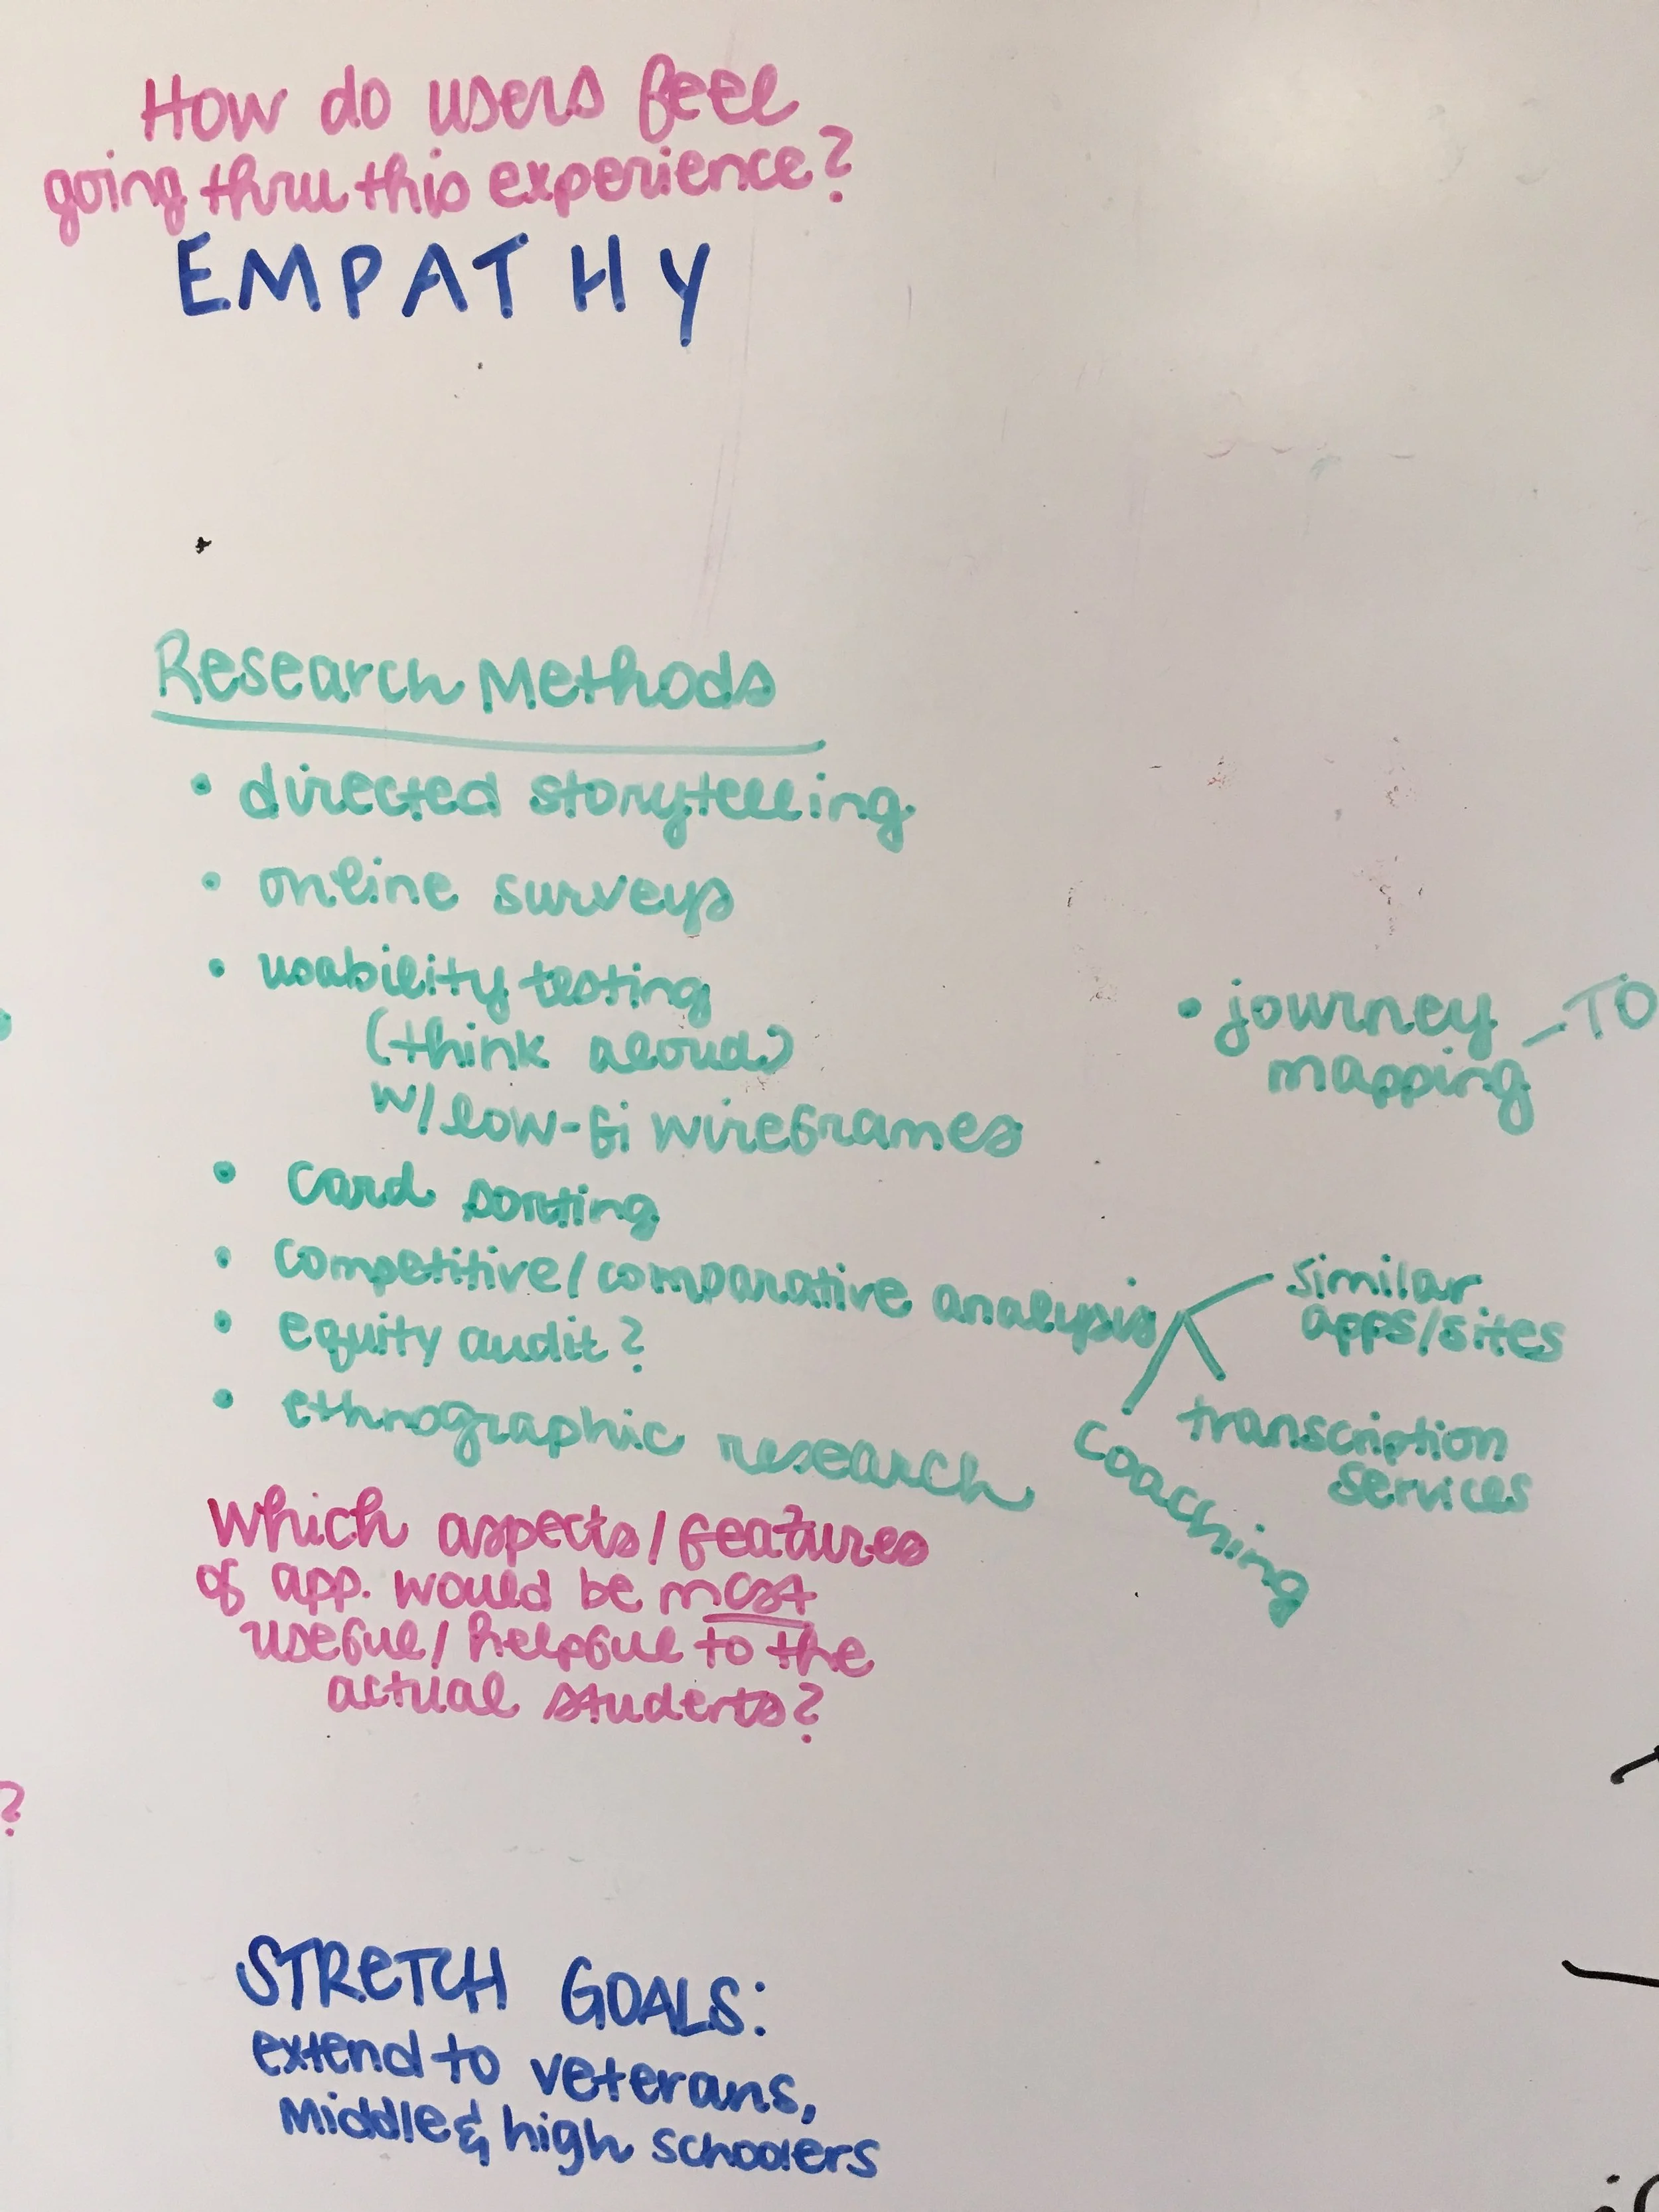 How do users feel
going thru this experience?
EMPATHY
Research Methods
• directed storytelling
• online surveys
• usability testing
(think aloud)
w/ low-fi wireframes
• card sorting
• competitive/comparative analysis
similar
apps/sites
transcription
services
coaching
• equity audit?
• ethnographic research
• journey
mapping
- TO
Which aspects/features
of app. would be most
useful/helpful to the
actual students?
?
STRETCH GOALS:
extend to veterans,
Middle & high schoolers